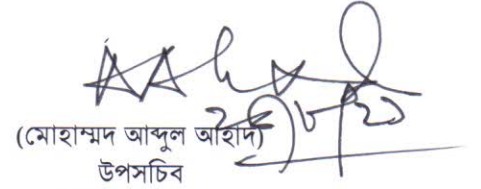 (মোহাম্মদ আব্দুল আহাদ)
উপসচিব